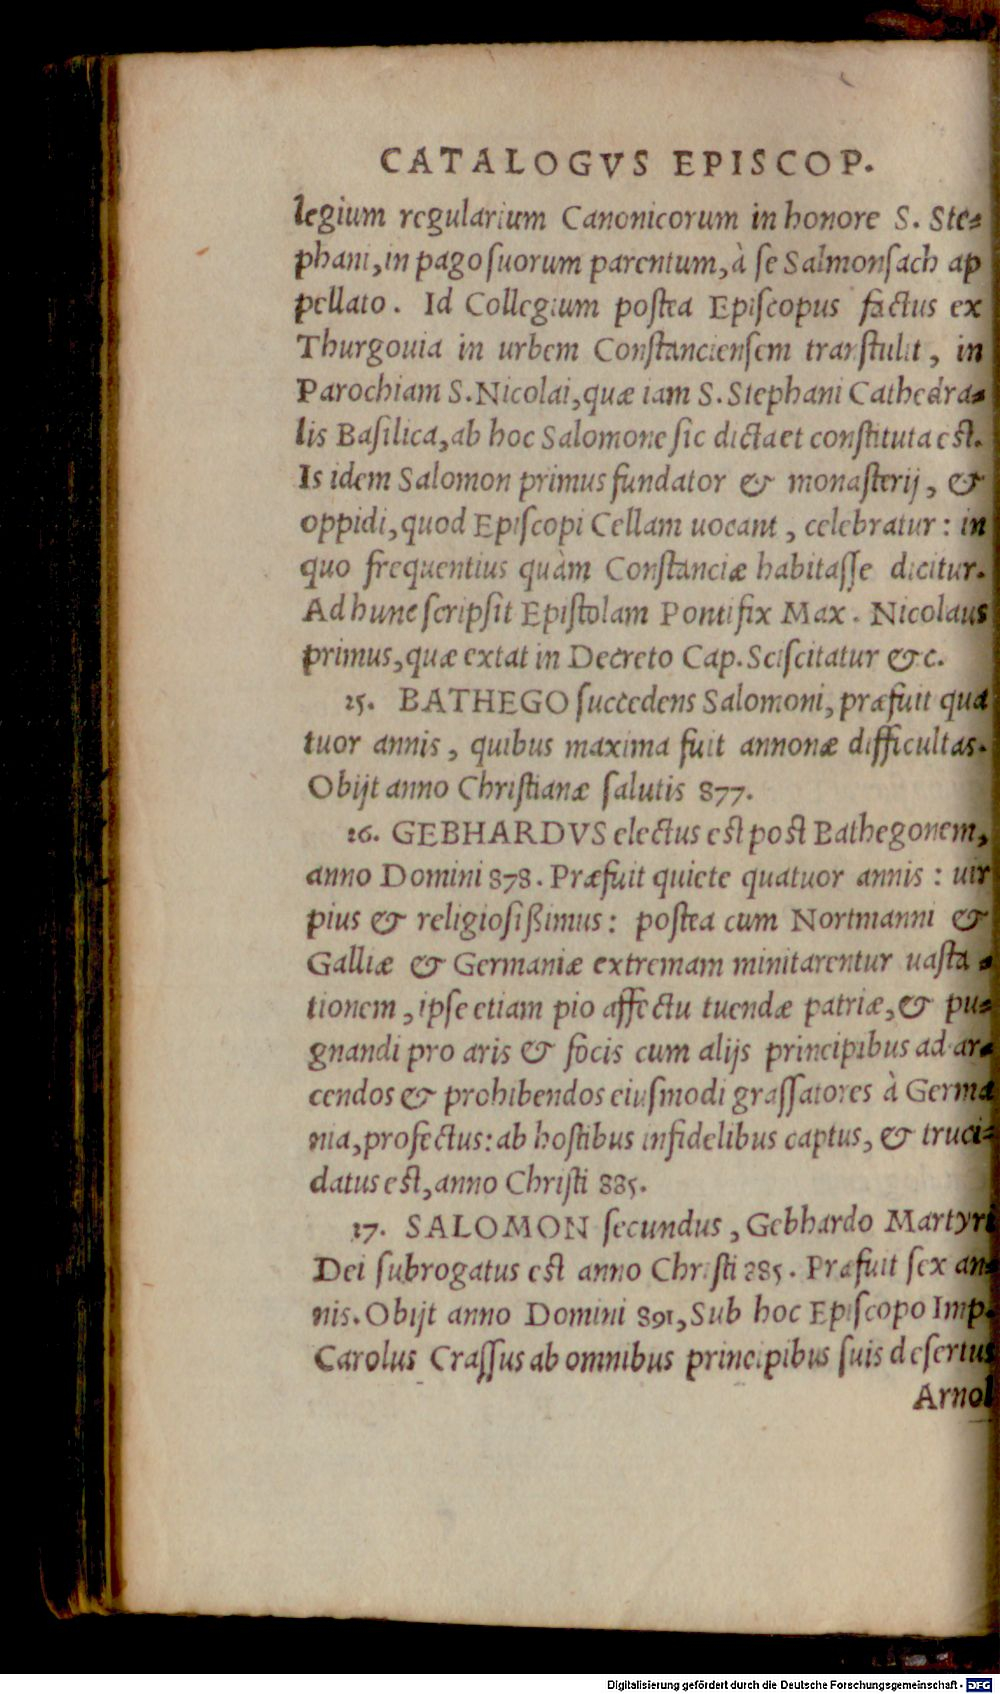 CATALOGVS EPISCOP.
legium regularium Canonicorum in honore S. Ste-
phani, in pago suorum parentum, à se Salmonsach ap
pellato. Id Collegium postea Episcopus factus ex
Thurgouia in urbem Constanciensem transtulit, in
Parochiam S. Nicolai, quæ iam S. Stephani Cathedra-
lis Basilica, ab hoc Salomone sic dicta et constituta est.
Is idem Salomon primus fundator & monasterij, &
oppidi, quod Episcopi Cellam uocant, celebratur: in
quo frequentius quàm Constanciæ habitasse dicitur.
Ad hunc scripsit Epistolam Pontifix Max. Nicolaus
primus, quæ extat in Decreto Cap. Sciscitatur &c.
15. BATHEGO succedens Salomoni, præfuit qua
tuor annis, quibus maxima fuit annonæ difficultas.
Obijt anno Christianæ salutis 877.
16. GEBHARDVS electus est post Bathegonem,
anno Domini 878. Præfuit quiete quatuor annis: uir
pius & religiosißimus: postea cum Nortmanni &
Galliæ & Germaniæ extremam minitarentur uasta-
tionem, ipse etiam pio affectu tuendæ patriæ, & pu-
gnandi pro aris & focis cum alijs principibus ad ar-
cendos & prohibendos eiusmodi grassatores à Germa
nia, profectus: ab hostibus infidelibus captus, & truci-
datus est, anno Christi 885.
17. SALOMON secundus, Gebhardo Martyri
Dei subrogatus est anno Christi 885. Præfuit sex an-
nis. Obijt anno Domini 891, Sub hoc Episcopo Imp.
Carolus Crassus ab omnibus principibus suis desertus
Arnol
Digitalisierung gefördert durch die Deutsche Forschungsgemeinschaft - DFG